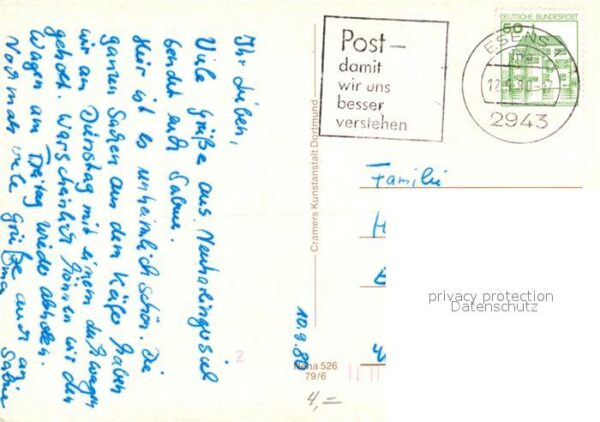 Ihr Lieben,
Viele Grüße aus Neuharlingersiel
sendet euch Sabine.
Hier ist es unheimlich schön. Die
ganzen Sachen aus dem Käfer haben
wir am Dienstag mit einem
geholt. Warscheinlich können wir den
Wagen am Freitag wieder abholen.
Nochmals viele Grüße auch an
Sabine
10.9.80
Cramers Kunstanstalt Dortmund
526
79/6
4,=
2
Post –
damit
wir uns
besser
verstehen
ESENS
12.9.80
2943
DEUTSCHE BUNDESPOST
50
Familie
H
privacy protection
Datenschutz